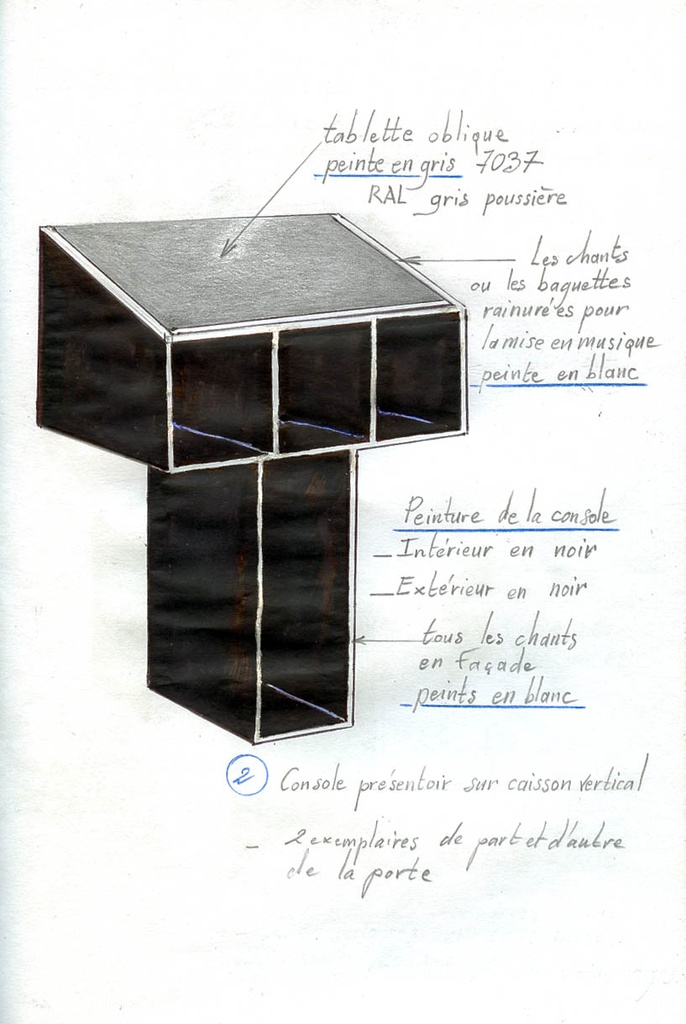 tablette oblique
peinte en gris 7037
RAL gris poussière
Les chants
ou les baguettes
rainurées pour
la mise en musique
peinte en blanc
Peinture de la console
- Intérieur en noir
- Extérieur en noir
tous les chants
en Façade
peints en blanc
2 Console présentoir sur caisson vertical
- 2 exemplaires de part et d'autre
de la porte